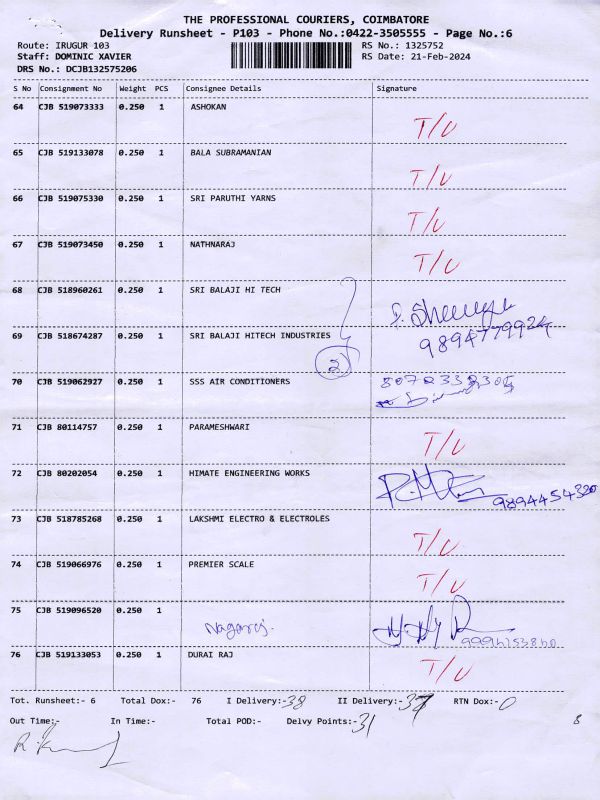 THE PROFESSIONAL COURIERS, COIMBATORE
Delivery Runsheet - P103 - Phone No.:0422-3505555 - Page No.:6
Route: IRUGUR 103 RS No.: 1325752
Staff: DOMINIC XAVIER RS Date: 21-Feb-2024
DRS No.: DCJB132575206
S No Consignment No Weight PCS Consignee Details Signature
64 CJB 519073333 0.250 1 ASHOKAN T/U
65 CJB 519133078 0.250 1 BALA SUBRAMANIAN T/U
66 CJB 519075330 0.250 1 SRI PARUTHI YARNS T/U
67 CJB 519073450 0.250 1 NATHNARAJ T/U
68 CJB 518960261 0.250 1 SRI BALAJI HI TECH
69 CJB 518674287 0.250 1 SRI BALAJI HITECH INDUSTRIES 2 9894779924
70 CJB 519062927 0.250 1 SSS AIR CONDITIONERS 8072332305
71 CJB 80114757 0.250 1 PARAMESHWARI T/U
72 CJB 80202054 0.250 1 HIMATE ENGINEERING WORKS 9894454320
73 CJB 518785268 0.250 1 LAKSHMI ELECTRO & ELECTROLES T/U
74 CJB 519066976 0.250 1 PREMIER SCALE T/U
75 CJB 519096520 0.250 1 Nagaraj.
76 CJB 519133053 0.250 1 DURAI RAJ T/U
Tot. Runsheet:- 6 Total Dox:- 76 I Delivery:-38 II Delivery:- RTN Dox:-0
Out Time:- In Time:- Total POD:- Delvy Points:-31 8